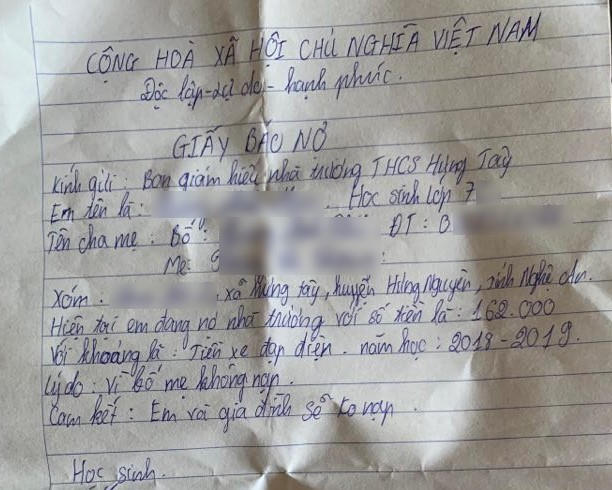 CỘNG HOÀ XÃ HỘI CHỦ NGHĨA VIỆT NAM
Độc lập - tự do - hạnh phúc.
GIẤY BÁO NỢ
Kính gửi: Ban giám hiệu nhà trường THCS Hưng Tây
Em tên là: Học sinh lớp 7
Tên cha mẹ: Bố: ĐT: 0
Mẹ:
Xóm: , xã Hưng tây, huyện Hưng Nguyên, tỉnh Nghệ An.
Hiện tại em đang nợ nhà trường với số tiền là: 162.000
Với khoảng là: Tiền xe đạp điện. năm học: 2018-2019.
Lý do: Vì bố mẹ không nạp.
Cam kết: Em và gia đình sẽ ko nạp.
Học sinh.